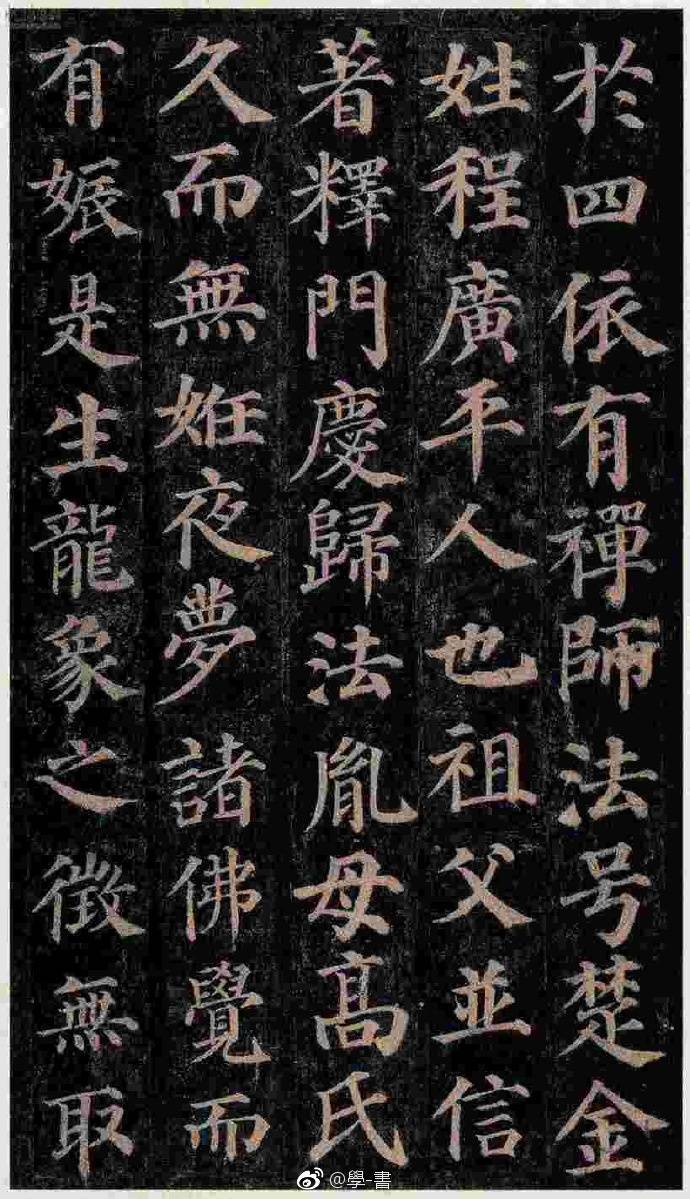 於四依有禪師法号楚金
姓程廣平人也祖父並信
著釋門慶歸法胤母高氏
久而無姙夜夢諸佛覺而
有娠是生龍象之徵無取
@學-書